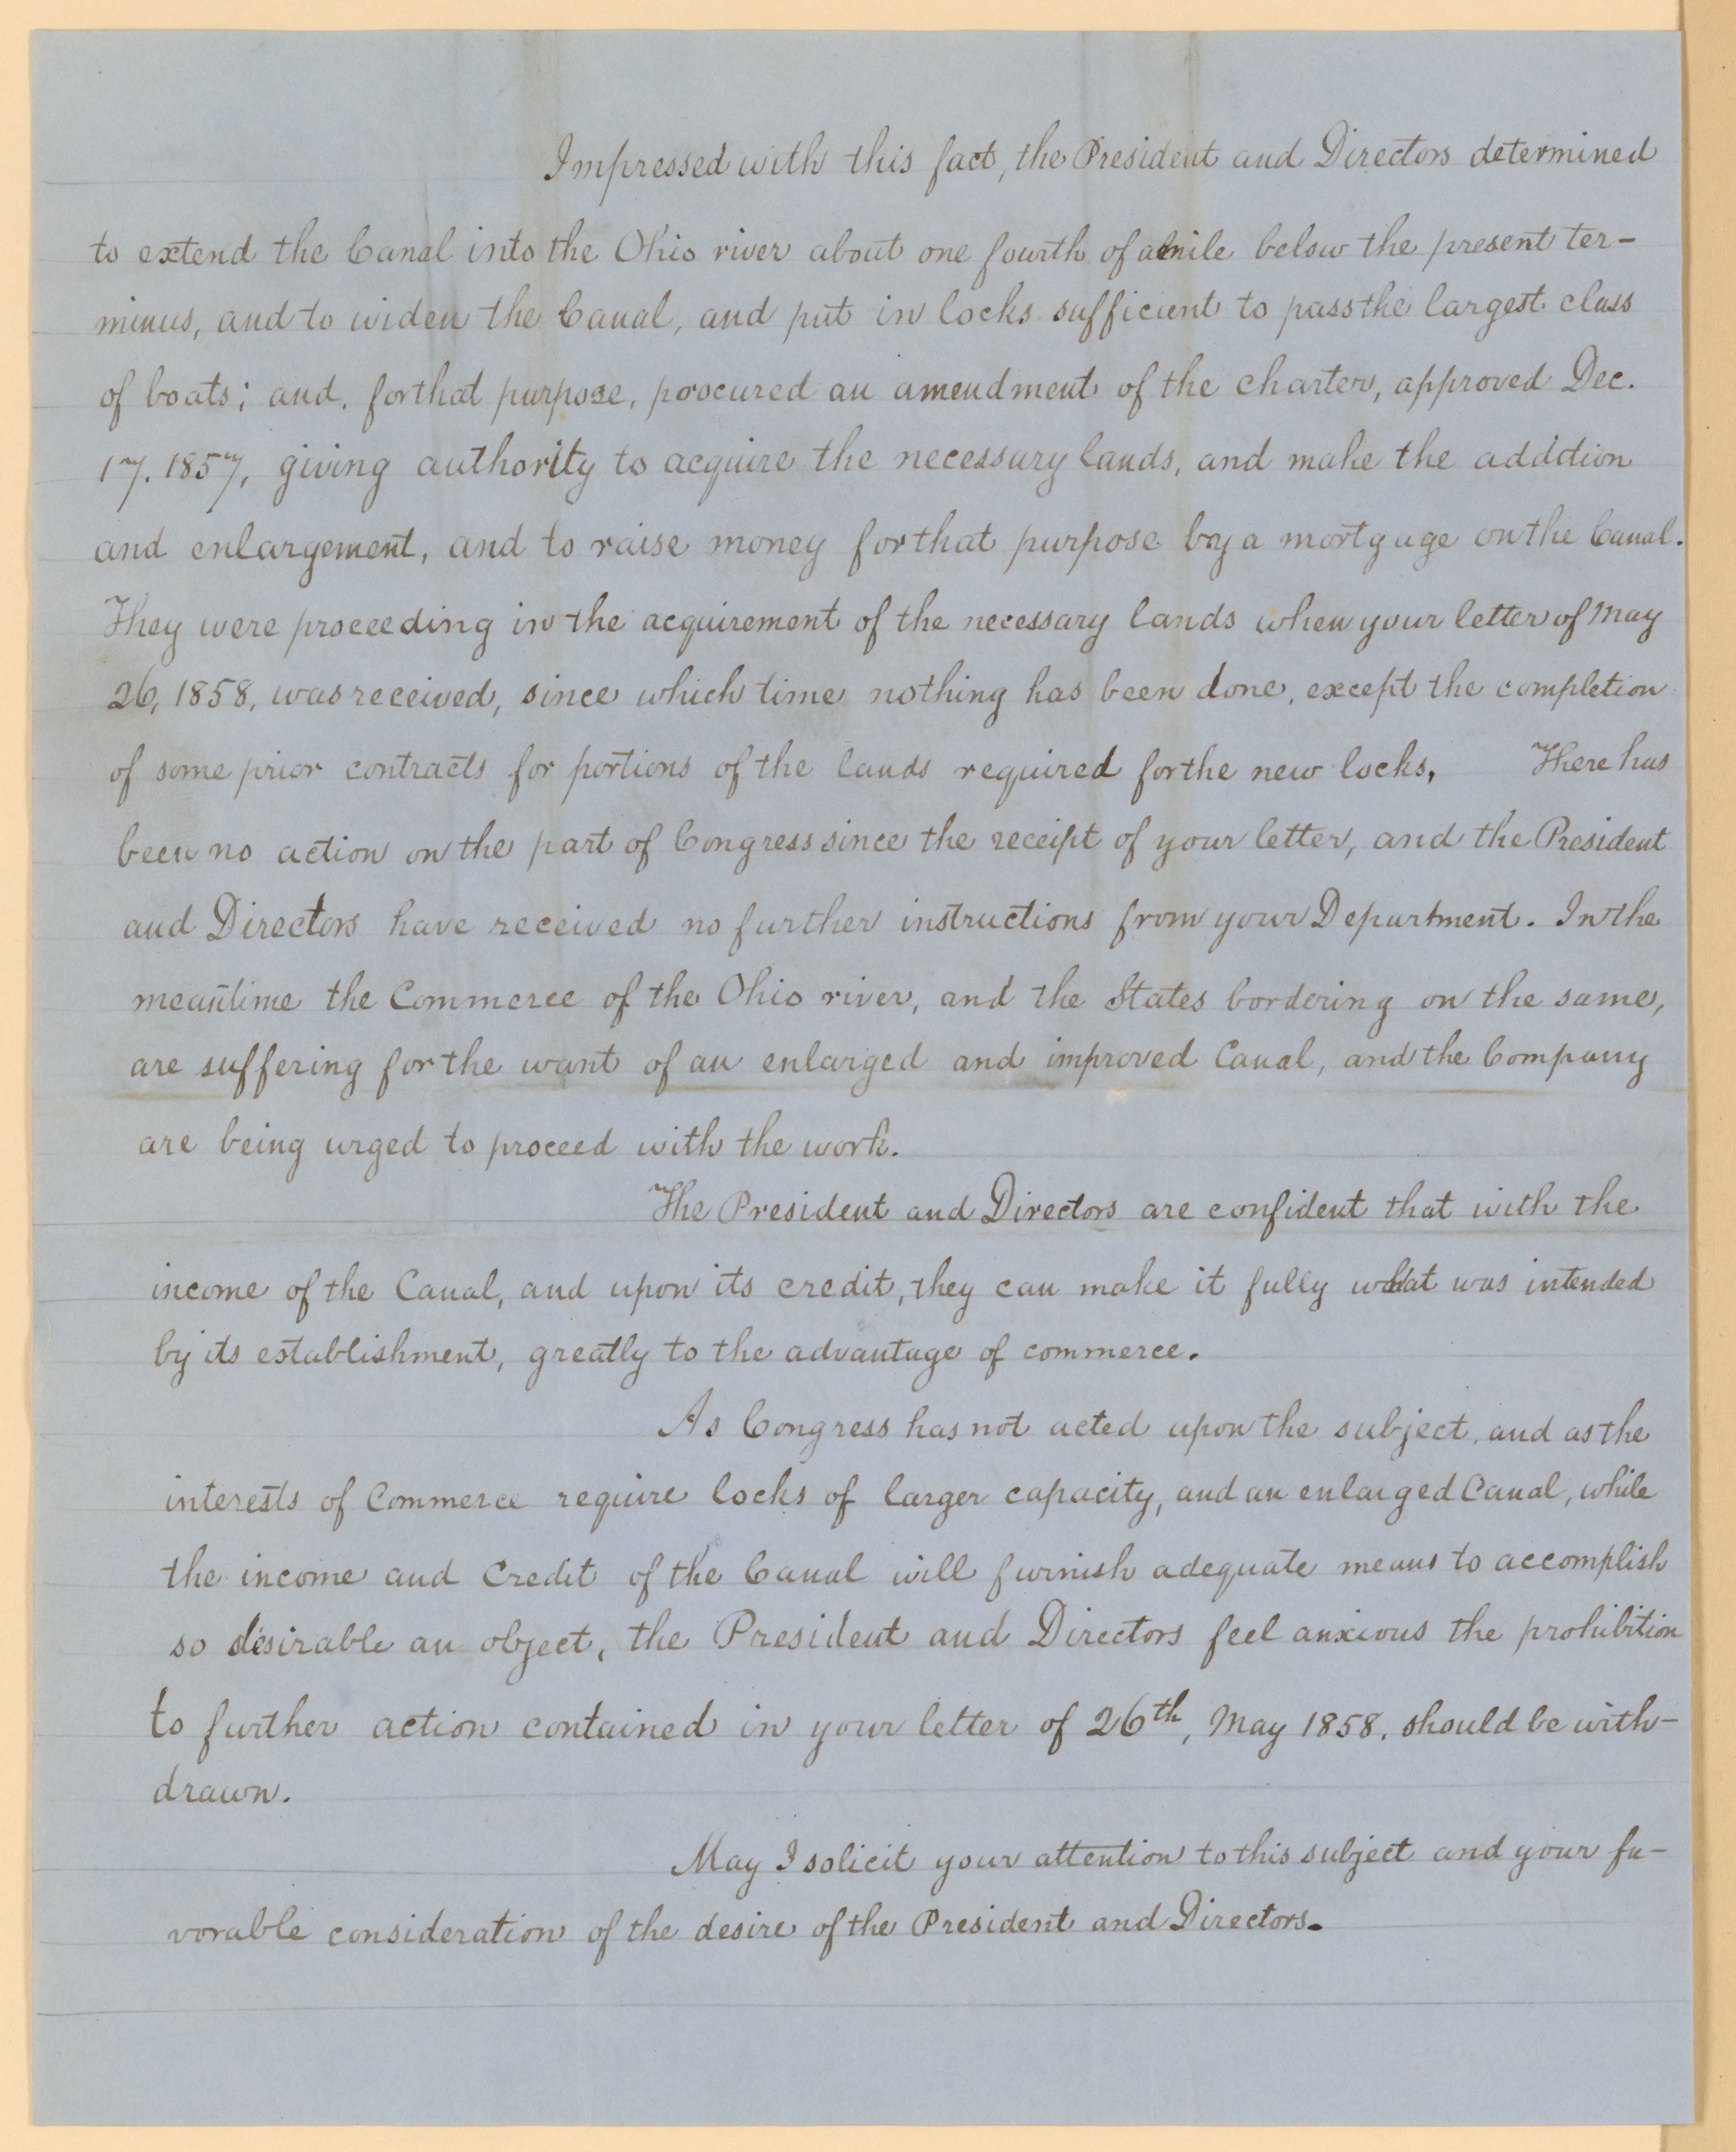 Impressed with this fact, the President and Directors determined
to extend the Canal into the Ohio river about one fourth of a mile below the present ter-
minus, and to widen the Canal, and put in locks sufficient to pass the largest class
of boats; and, for that purpose, procured an amendment of the charter, approved Dec.
17. 1857, giving authority to acquire the necessary lands, and make the addition
and enlargement, and to raise money for that purpose by a mortgage on the Canal.
They were proceeding in the acquirement of the necessary lands when your letter of May
26, 1858, was received, since which time nothing has been done, except the completion
of some prior contracts for portions of the lands required for the new locks, There has
been no action on the part of Congress since the receipt of your letter, and the President
and Directors have received no further instructions from your Department. In the
meantime the Commerce of the Ohio river, and the States bordering on the same,
are suffering for the want of an enlarged and improved Canal, and the Company
are being urged to proceed with the work.
The President and Directors are confident that with the
income of the Canal, and upon its credit, they can make it fully what was intended
by its establishment, greatly to the advantage of commerce.
As Congress has not acted upon the subject, and as the
interests of Commerce require locks of larger capacity, and an enlarged Canal, while
the income and Credit of the Canal will furnish adequate means to accomplish
so desirable an object, the President and Directors feel anxious the prohibition
to further action contained in your letter of 26th, May 1858. should be with-
drawn.
May I solicit your attention to this subject and your fa-
vorable consideration of the desire of the President and Directors.